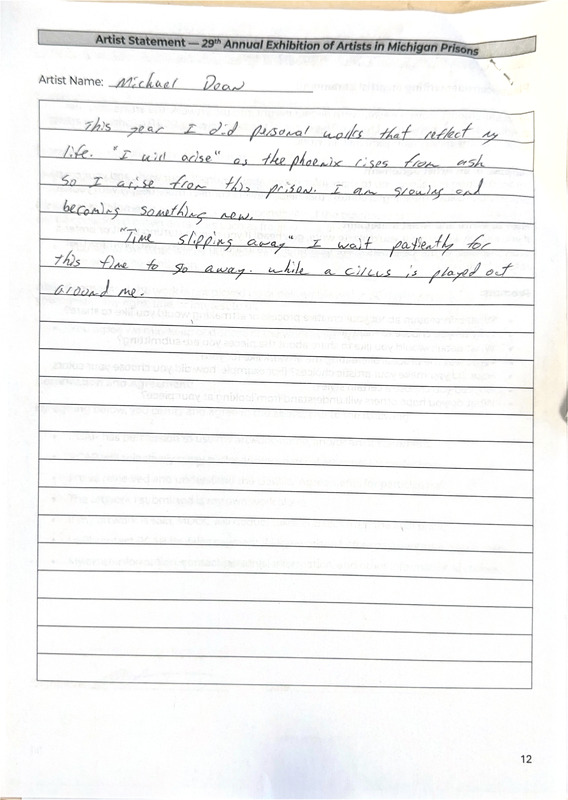 Artist Statement — 29th Annual Exhibition of Artists in Michigan Prisons
Artist Name: Michael Dean
This year I did personal works that reflect my
life. "I will arise" as the phoenix rises from ash
so I arise from this prison. I am growing and
becoming something new.
"Time slipping away" I wait patiently for
this time to go away. while a circus is played out
around me.
12